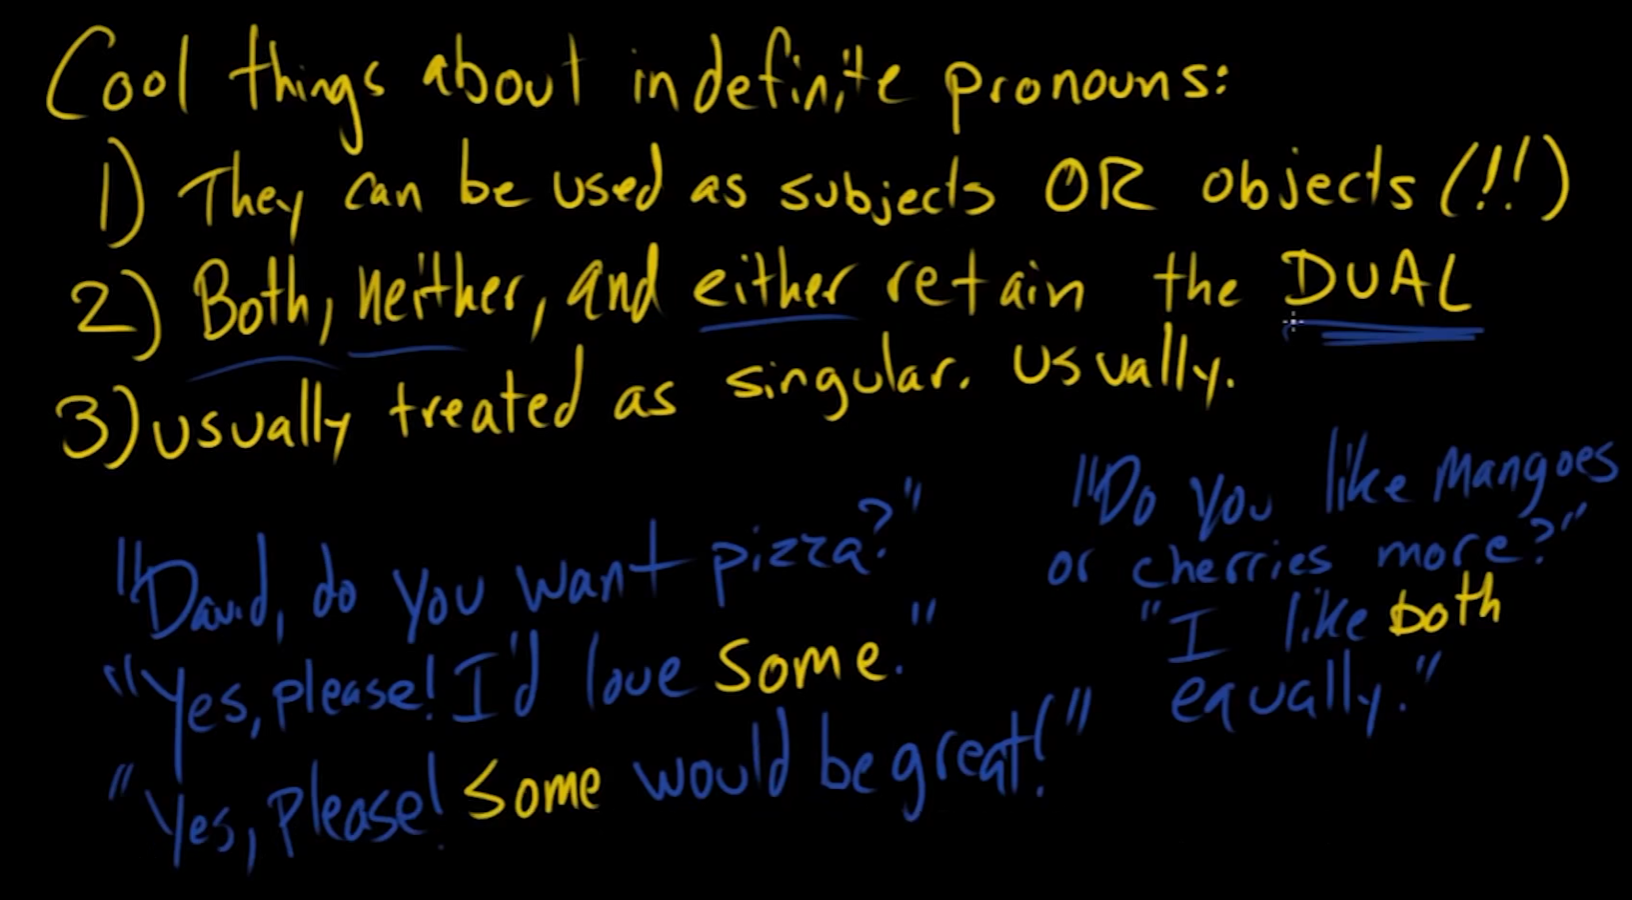 Cool things about indefinite pronouns:
1) They can be used as subjects OR objects (!!)
2) Both, neither, and either retain the DUAL
3) usually treated as singular. Usually.
"David, do you want pizza?"
"Yes, please! I'd love some."
"Yes, please! Some would be great!"
"Do you like Mangoes
or cherries more?"
"I like both
equally."